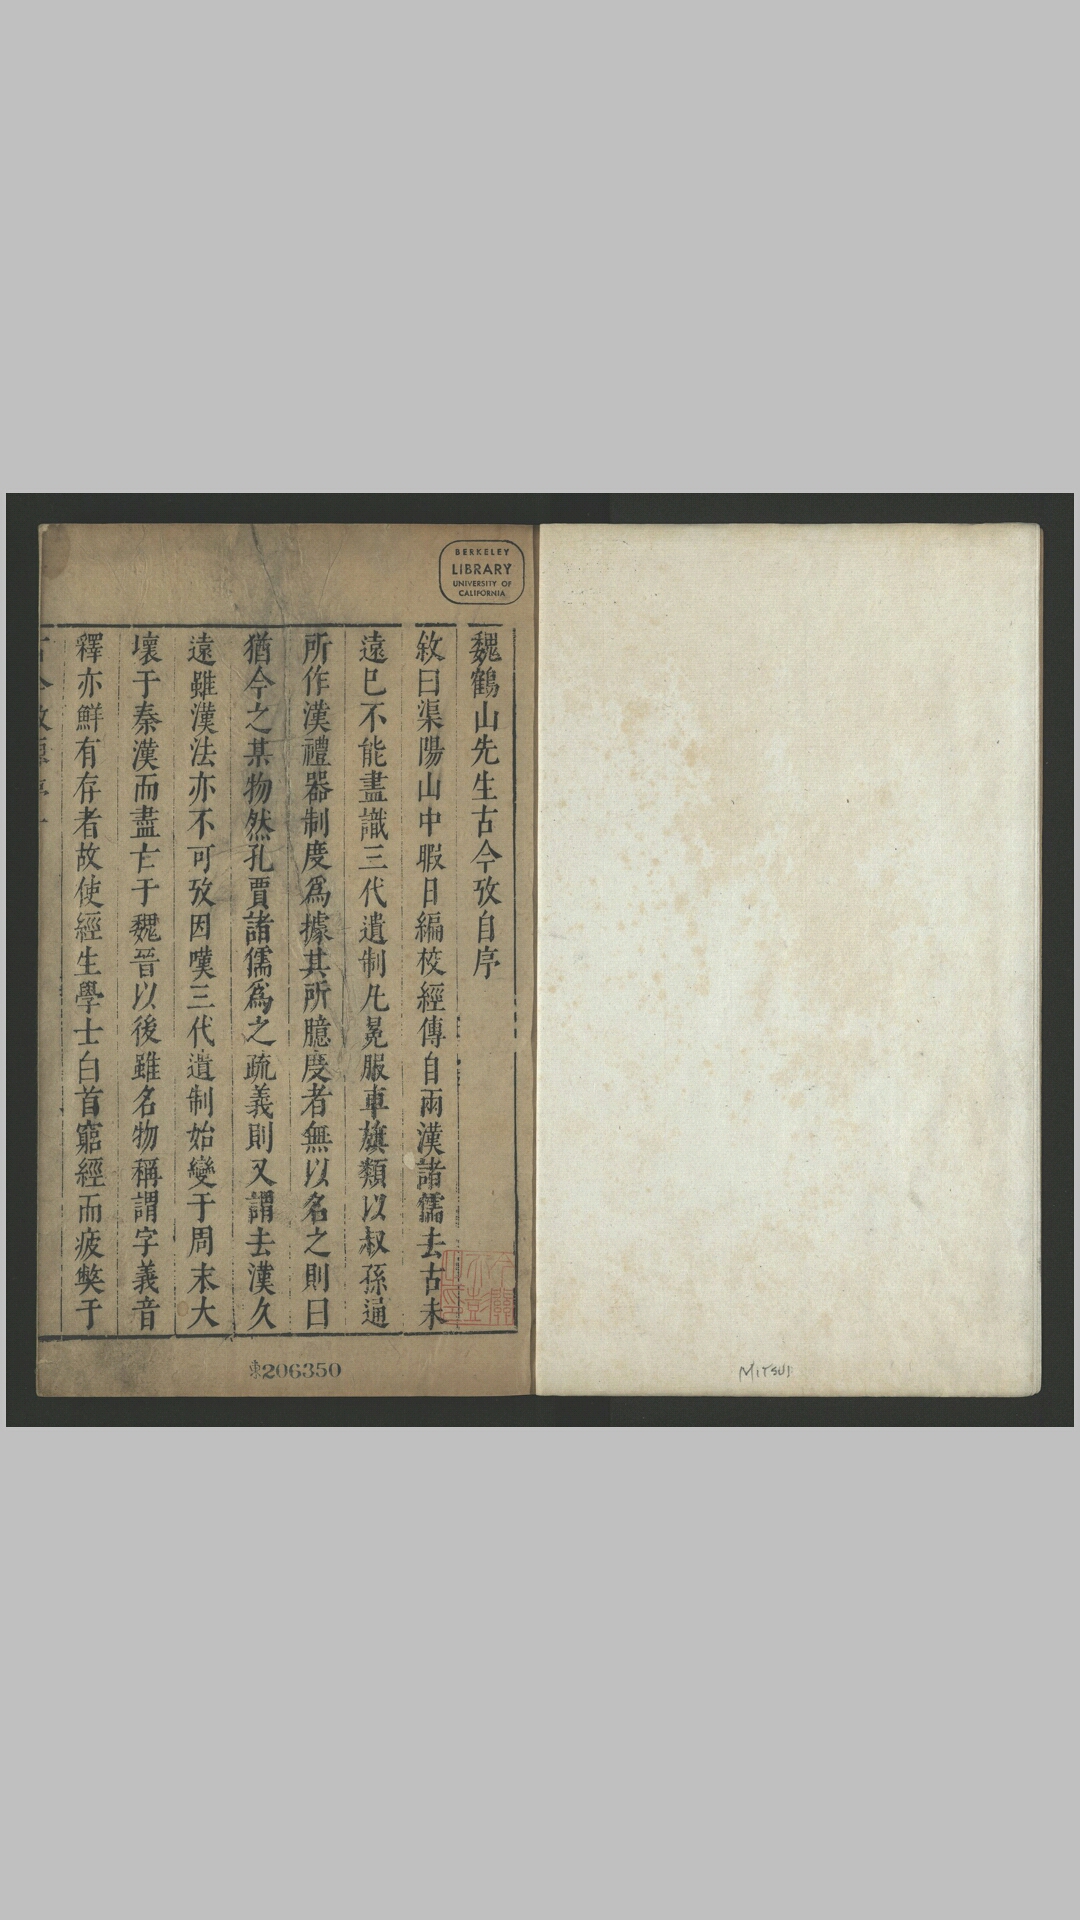 魏鶴山先生古今攷自序
敘曰渠陽山中暇日編校經傳自兩漢諸儒去古未
遠已不能盡識三代遺制凡冕服車旗類以叔孫通
所作漢禮器制度爲據其所臆度者無以名之則曰
猶今之某物然孔賈諸儒爲之疏義則又謂去漢久
遠雖漢法亦不可攷因嘆三代遺制始變于周末大
壞于秦漢而盡亡于魏晉以後雖名物稱謂字義音
釋亦鮮有存者故使經生學士白首窮經而疲獘于
BERKELEY
LIBRARY
UNIVERSITY OF
CALIFORNIA
東206350
MITSUI